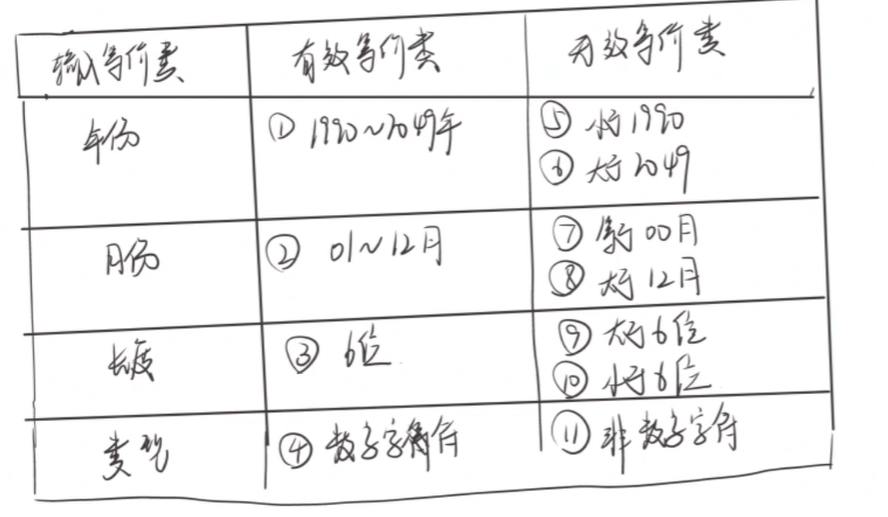 输入等价类 有效等价类 无效等价类
年份 ① 1990~2049年 ⑤ 小于1990
⑥ 大于2049
月份 ② 01~12月 ⑦ 等于00月
⑧ 大于12月
长度 ③ 6位 ⑨ 大于6位
⑩ 小于6位
类型 ④ 数字字符 ⑪ 非数字字符